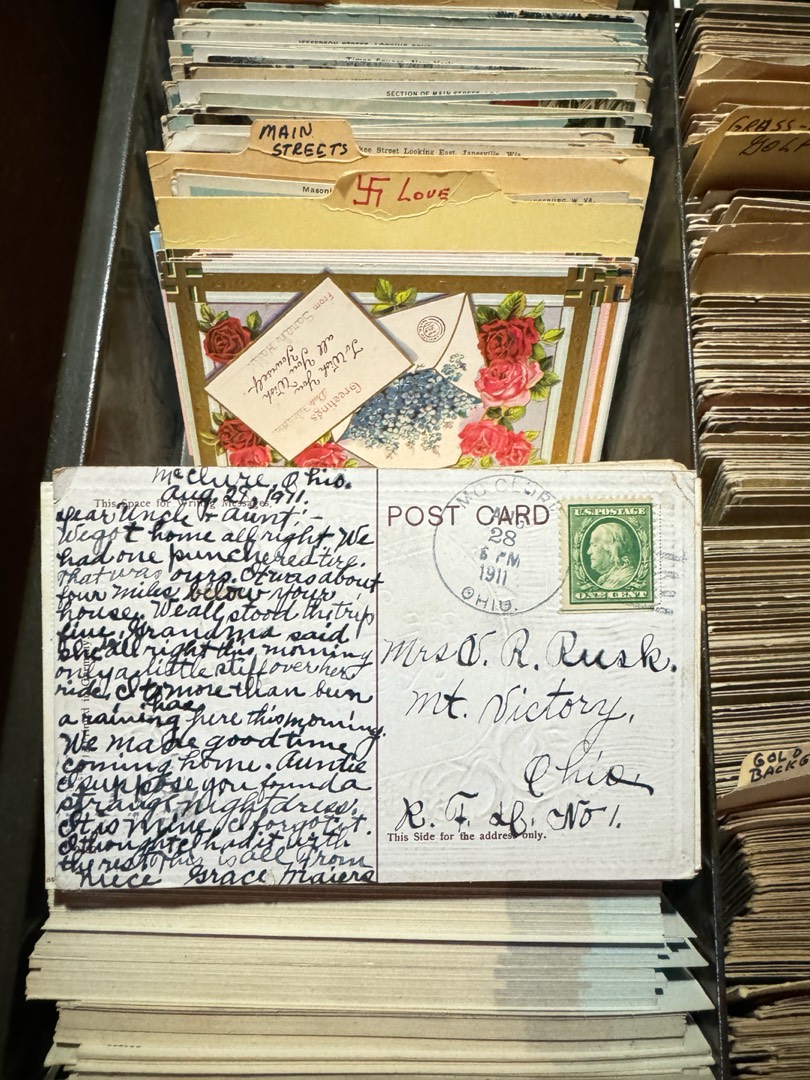 JEFFERSON STREET, LOOKING
Times Square, New York
SECTION OF MAIN STREET
MAIN
STREETS
kee Street Looking East, Janesville, Wis.
GRASS-
Masoni
SBURG W. VA.
卐 LOVE
Greetings
To Wish You
all You Wish
Yourself
From Sarah
McClure, Ohio.
Aug. 28, 1911.
This Space for Writing Messages.
Dear Uncle & Aunt;-
We got home all right. We
had one punchered tire.
that was ours. It was about
four miles below your
house. We all stood the trip
fine. Grandma said
she all right this morning
only a little stiff over her
ride. It more than been
has
a raining here this morning.
We made good time
coming home. Auntie
I suppose you found a
strange nightdress.
It is mine, I forgot it.
I thought I had it with
the rest. This is all from
Niece Grace Maiers
POST CARD
MC CLURE
AUG
28
6 PM
1911
OHIO.
U.S. POSTAGE
ONE CENT
Mrs V. R. Rusk.
Mt. Victory,
Ohio
R. F. D. No 1.
This Side for the address only.
GOLD
BACKG